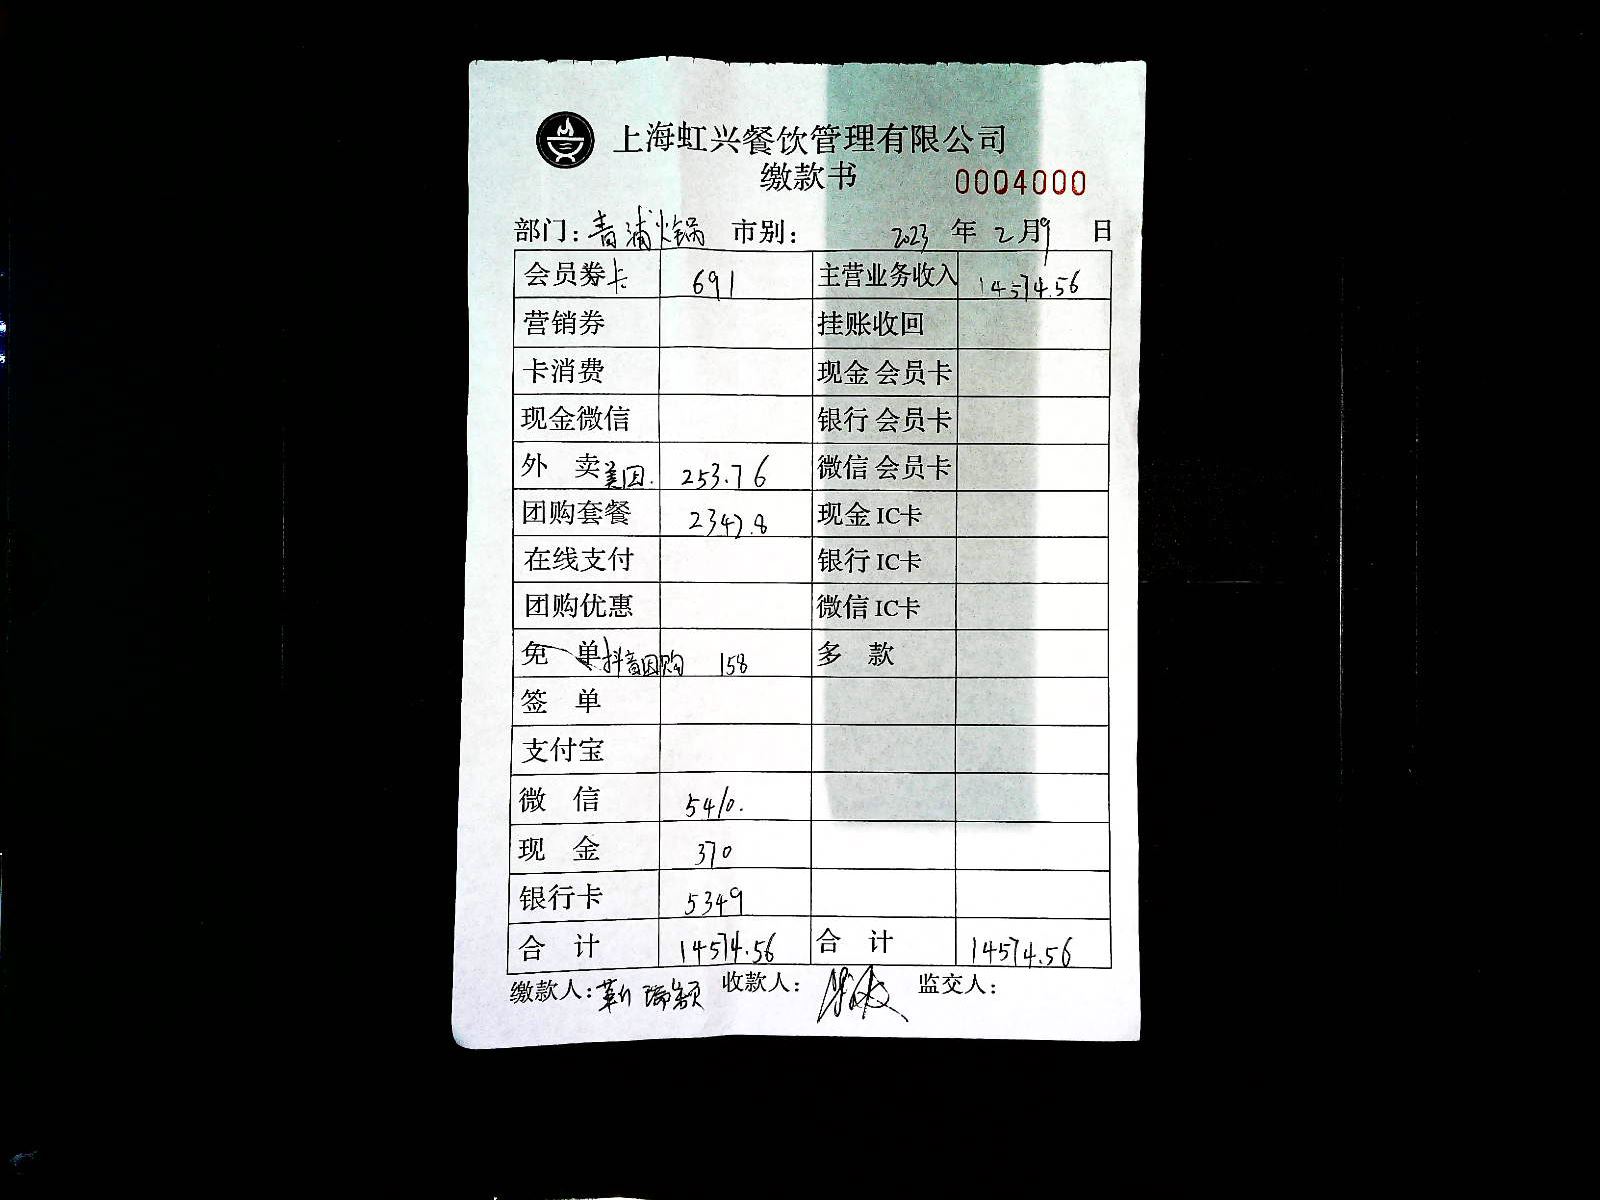 上海虹兴餐饮管理有限公司
缴款书 0004000
部门: 青浦火锅 市别: 2023 年 2 月 9 日
会员券卡 691 主营业务收入 14574.56
营销券 挂账收回
卡消费 现金 会员卡
现金微信 银行 会员卡
外 卖 美团. 253.76 微信 会员卡
团购套餐 2342.8 现金 IC卡
在线支付 银行 IC卡
团购优惠 微信 IC卡
免 单 抖音团购 158 多 款
签 单
支付宝
微 信 5410.
现 金 370
银行卡 5349
合 计 14574.56 合 计 14574.56
缴款人: 靳瑞颖 收款人: 监交人: